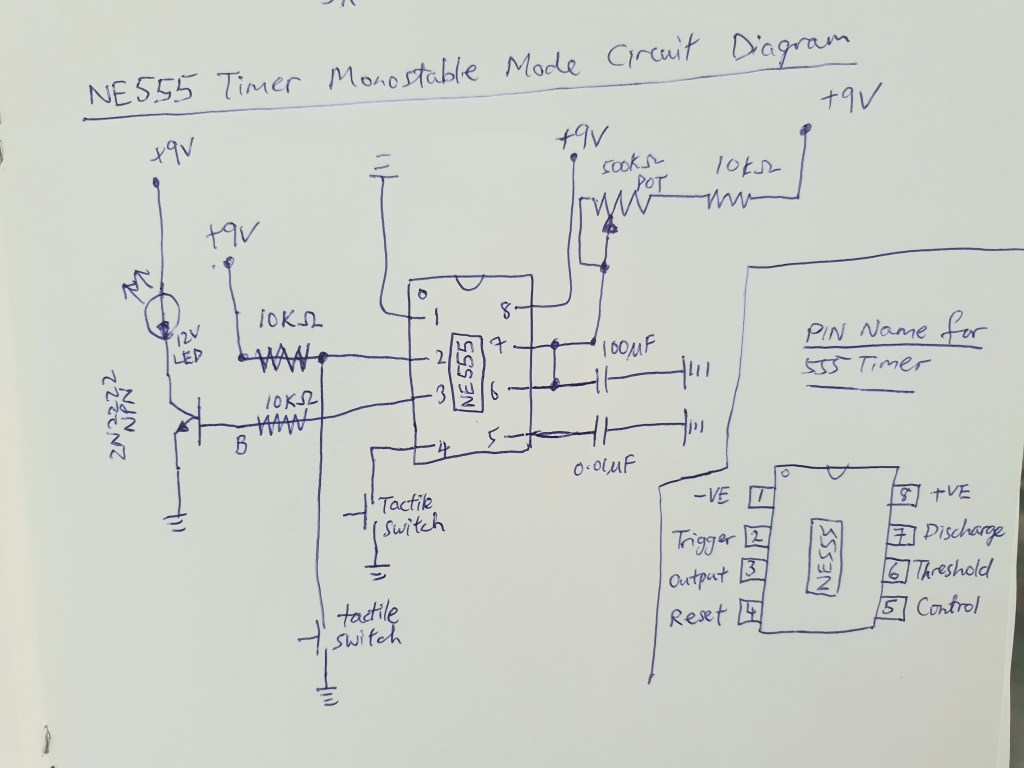 NE555 Timer Monostable Mode Circuit Diagram
+9V
+9V
+9V
+9V
500KΩ
POT
10KΩ
12V
LED
10KΩ
10KΩ
2N2222
NPN
B
1
2
3
4
8
7
6
5
NE555
100µF
0.01µF
Tactile
switch
tactile
switch
PIN Name for
555 Timer
-VE 1
Trigger 2
Output 3
Reset 4
NE555
8 +VE
7 Discharge
6 Threshold
5 Control